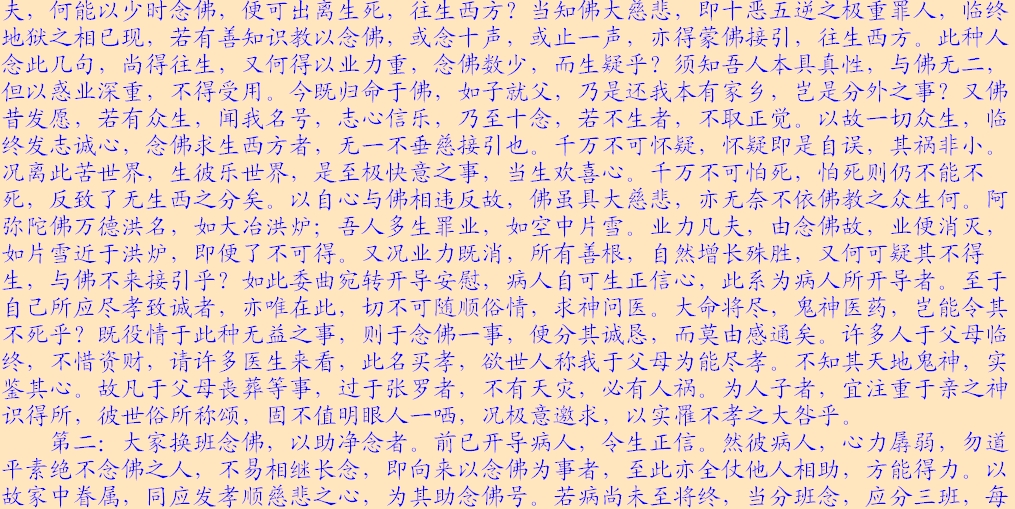 夫，何能以少时念佛，便可出离生死，往生西方？当知佛大慈悲，即十恶五逆之极重罪人，临终
地狱之相已现，若有善知识教以念佛，或念十声，或止一声，亦得蒙佛接引，往生西方。此种人
念此几句，尚得往生，又何得以业力重，念佛数少，而生疑乎？须知吾人本具真性，与佛无二，
但以惑业深重，不得受用。今既归命于佛，如子就父，乃是还我本有家乡，岂是分外之事？又佛
昔发愿，若有众生，闻我名号，志心信乐，乃至十念，若不生者，不取正觉。以故一切众生，临
终发志诚心，念佛求生西方者，无一不垂慈接引也。千万不可怀疑，怀疑即是自误，其祸非小。
况离此苦世界，生彼乐世界，是至极快意之事，当生欢喜心。千万不可怕死，怕死则仍不能不
死，反致了无生西之分矣。以自心与佛相违反故，佛虽具大慈悲，亦无奈不依佛教之众生何。阿
弥陀佛万德洪名，如大冶洪炉；吾人多生罪业，如空中片雪。业力凡夫，由念佛故，业便消灭，
如片雪近于洪炉，即便了不可得。又况业力既消，所有善根，自然增长殊胜，又何可疑其不得
生，与佛不来接引乎？如此委曲宛转开导安慰，病人自可生正信心，此系为病人所开导者。至于
自己所应尽孝致诚者，亦唯在此，切不可随顺俗情，求神问医。大命将尽，鬼神医药，岂能令其
不死乎？既役情于此种无益之事，则于念佛一事，便分其诚恳，而莫由感通矣。许多人于父母临
终，不惜资财，请许多医生来看，此名买孝，欲世人称我于父母为能尽孝。不知其天地鬼神，实
鉴其心。故凡于父母丧葬等事，过于张罗者，不有天灾，必有人祸。为人子者，宜注重于亲之神
识得所，彼世俗所称颂，固不值明眼人一哂，况极意邀求，以实罹不孝之大咎乎。
第二：大家换班念佛，以助净念者。前已开导病人，令生正信。然彼病人，心力孱弱，勿道
平素绝不念佛之人，不易相继长念，即向来以念佛为事者，至此亦全仗他人相助，方能得力。以
故家中眷属，同应发孝顺慈悲之心，为其助念佛号。若病尚未至将终，当分班念，应分三班，每